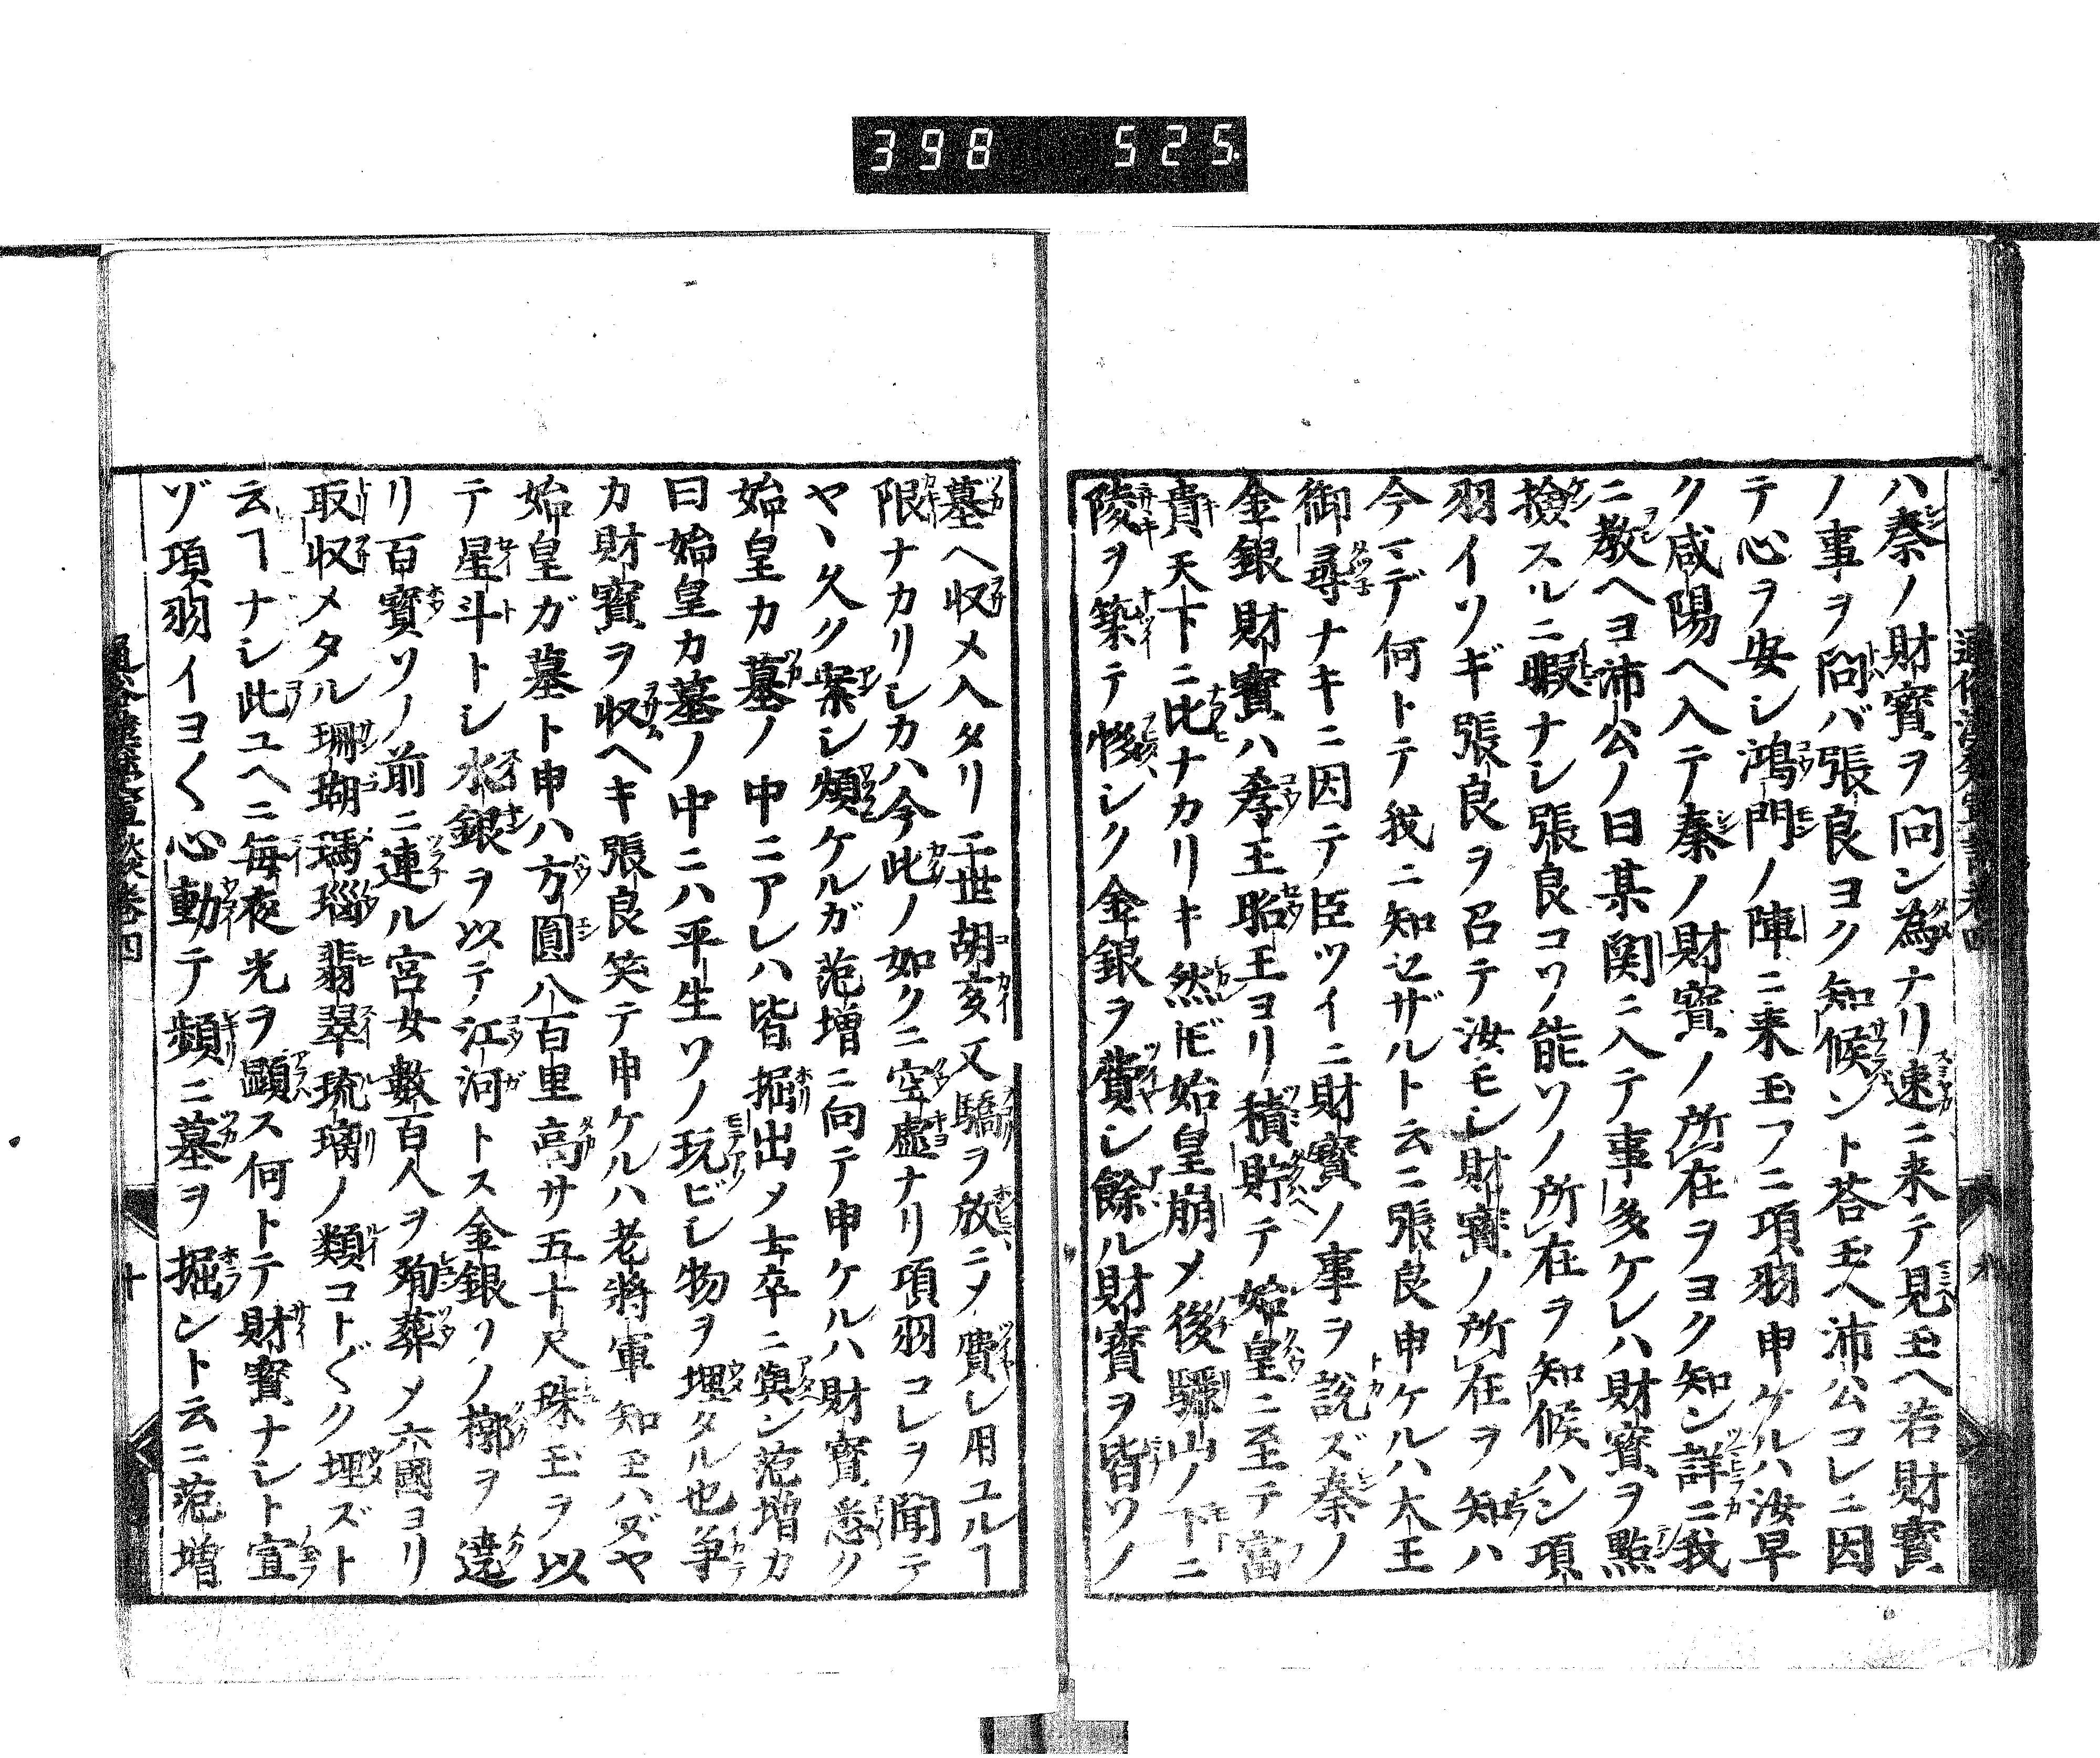 398 525.
ハ秦ノ財寳ヲ問ン為ナリ速ニ来テ見玉ヘ若財寳
ノ事ヲ問バ張良ヨク知候ント荅玉ヘ沛公コレニ因
テ心ヲ安シ鴻門ノ陣ニ来玉フニ項羽申ケルハ汝早
ク咸陽ヘ入テ秦ノ財寳ノ所在ヲヨク知ン詳ニ我
ニ教ヘヨ沛公ノ曰某関ニ入テ事多ケレハ財寳ヲ點
撿スルニ暇ナシ張良コソ能ソノ所在ヲ知候ハン項
羽イソギ張良ヲ召テ汝モシ財寳ノ所在ヲ知ハ
今マデ何トテ我ニ知セザルト云ニ張良申ケルハ大王
御尋ナキニ因テ臣ツイニ財寳ノ事ヲ説ズ秦ノ
金銀財寳ハ孝王昭王ヨリ積貯テ始皇ニ至テ富
貴天下ニ比ナカリキ然𪜈始皇崩メ後驪山ノ下ニ
陵ヲ築テ夥シク金銀ヲ費シ餘ル財寳ヲ皆ソノ
墓ヘ収メ入タリ二世胡亥又驕ヲ放ニメ費シ用ユルヿ
限ナカリシカハ今此ノ如クニ空虚ナリ項羽コレヲ聞テ
ヤヽ久ク案シ煩ケルガ范増ニ向テ申ケルハ財寳悉ク
始皇カ墓ノ中ニアレハ皆掘出メ士卒ニ與ン范増カ
曰始皇カ墓ノ中ニハ平生ソノ玩ビシ物ヲ埋タル也争
カ財寳ヲ収ヘキ張良笑テ申ケルハ老將軍知玉ハズヤ
始皇ガ墓ト申ハ方圓八百里高サ五十尺珠玉ヲ以
テ星斗トシ水銀ヲ以テ江河トス金銀ソノ槨ヲ遶
リ百寳ソノ前ニ連ル宮女數百人ヲ殉葬メ六國ヨリ
取収メタル珊瑚瑪瑙翡翠琉璃ノ類コト〲ク埋ズト
云ヿナシ此ユヘニ毎夜光ヲ顕ス何トテ財寳ナシト宣
ゾ項羽イヨ〱心動テ頻ニ墓ヲ掘ント云ニ范増
十